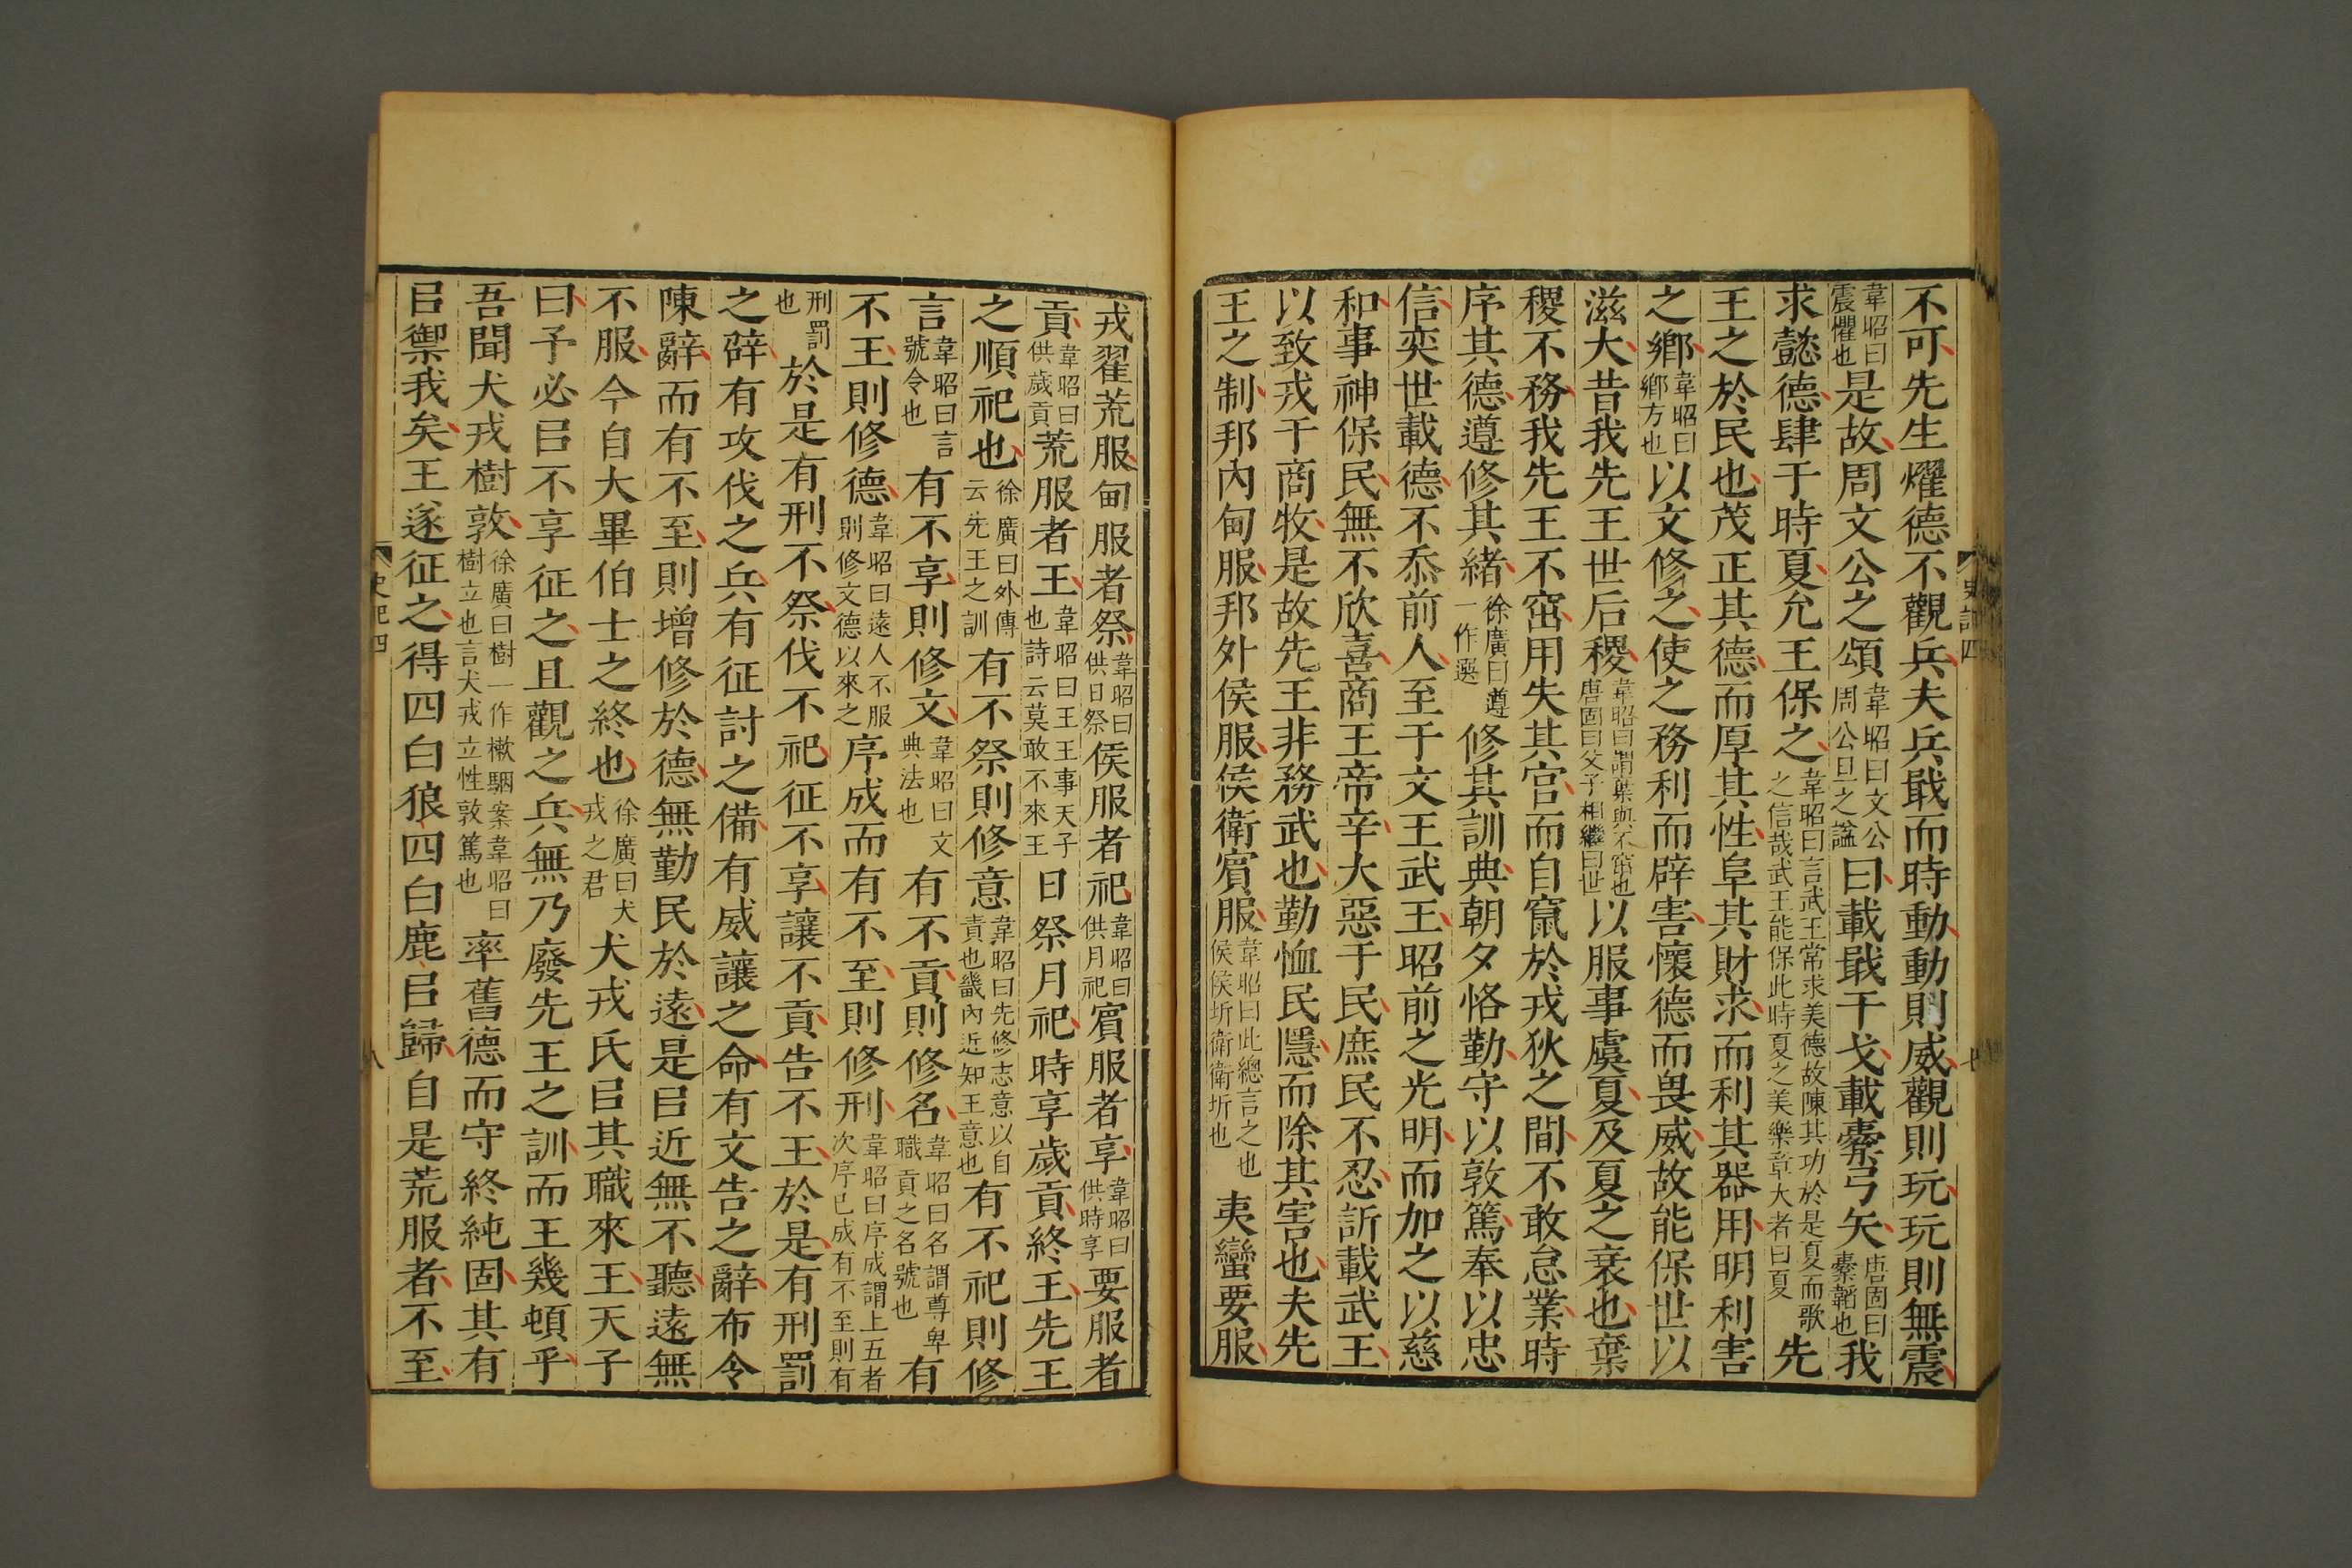 不可先生燿德不觀兵夫兵戢而時動動則威觀則玩玩則無震
韋昭曰震懼也是故周文公之頌韋昭曰文公周公旦之諡曰載戢干戈載櫜弓矢唐固曰櫜韜也我
求懿德肆于時夏允王保之韋昭曰言武王常求美德故陳其功於是夏而歌之信哉武王能保此時夏之美樂章大者曰夏先
王之於民也茂正其德而厚其性阜其財求而利其器用明利害
之鄉韋昭曰鄉方也以文修之使之務利而辟害懷德而畏威故能保世以
滋大昔我先王世后稷韋昭曰謂棄與不窋也唐固曰父子相繼曰世以服事虞夏及夏之衰也棄
稷不務我先王不窋用失其官而自竄於戎狄之間不敢怠業時
序其德遵修其緒徐廣曰遵一作選修其訓典朝夕恪勤守以敦篤奉以忠
信奕世載德不忝前人至于文王武王昭前之光明而加之以慈
和事神保民無不欣喜商王帝辛大惡于民庶民不忍訢載武王
以致戎于商牧是故先王非務武也勤恤民隱而除其害也夫先
王之制邦內甸服邦外侯服侯衛賓服韋昭曰此總言之也侯侯圻衛衛圻也夷蠻要服
史記四
七
戎翟荒服甸服者祭韋昭曰供日祭侯服者祀韋昭曰供月祀賓服者享韋昭曰供時享要服者
貢韋昭曰供歲貢荒服者王韋昭曰王王事天子也詩云莫敢不來王日祭月祀時享歲貢終王先王
之順祀也徐廣曰外傳云先王之訓有不祭則修意韋昭曰先修志意以自責也畿內近知王意也有不祀則修
言韋昭曰言號令也有不享則修文韋昭曰文典法也有不貢則修名韋昭曰名謂尊卑職貢之名號也有
不王則修德韋昭曰遠人不服則修文德以來之序成而有不至則修刑韋昭曰序成謂上五者次序已成有不至則有
刑罰也於是有刑不祭伐不祀征不享讓不貢告不王於是有刑罰
之辟有攻伐之兵有征討之備有威讓之命有文告之辭布令
陳辭而有不至則增修於德無勤民於遠是㠯近無不聽遠無
不服今自大畢伯士之終也徐廣曰犬戎之君犬戎氏㠯其職來王天子
曰予必㠯不享征之且觀之兵無乃廢先王之訓而王幾頓乎
吾聞犬戎樹敦徐廣曰樹一作樕駰案韋昭曰樹立也言犬戎立性敦篤也率舊德而守終純固其有
㠯禦我矣王遂征之得四白狼四白鹿㠯歸自是荒服者不至
史記四
八